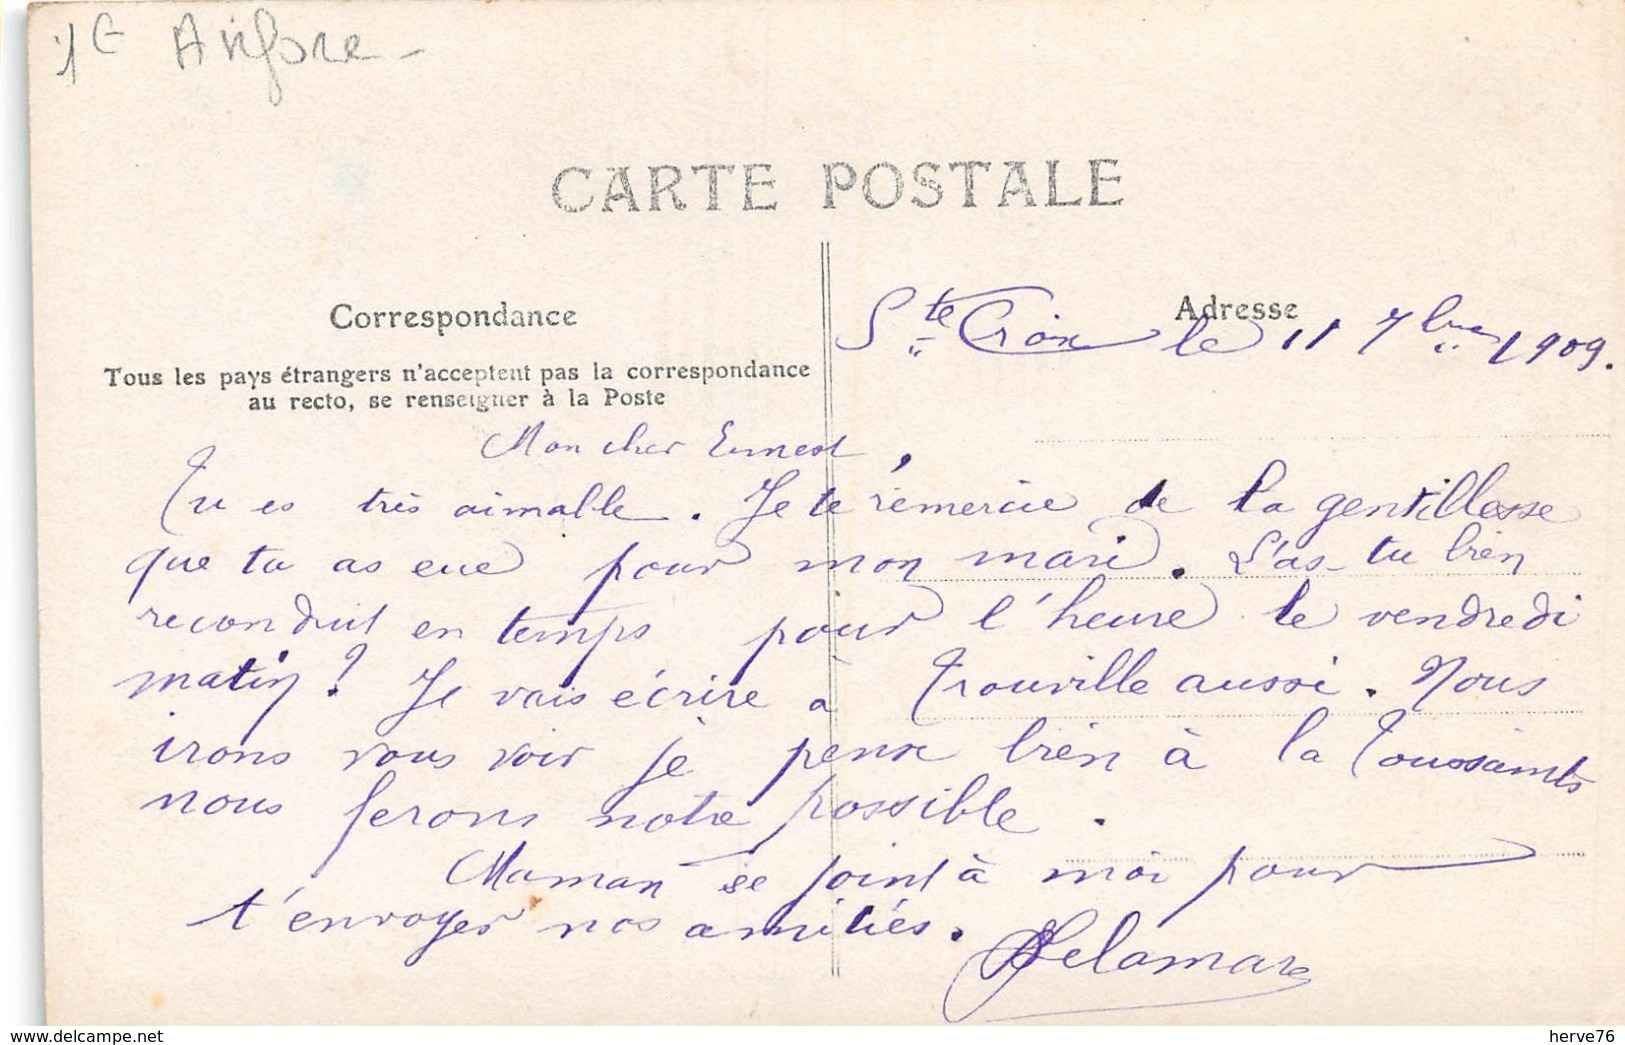 1€
CARTE POSTALE
Correspondance
Adresse
Tous les pays étrangers n'acceptent pas la correspondance
au recto, se renseigner à la Poste
Ste Croix le 11 7bre 1909.
Mon cher Ernest,
Tu es très aimable. Je te remercie de la gentillesse
que tu as eue pour mon mari. L'as-tu bien
reconduit en temps pour l'heure le vendredi
matin? Je vais écrire à Trouville aussi. Nous
irons vous voir je pense bien à la Toussaints
nous ferons notre possible.
Maman se joint à moi pour
t'envoyer nos amitiés.
Delamare
herve76